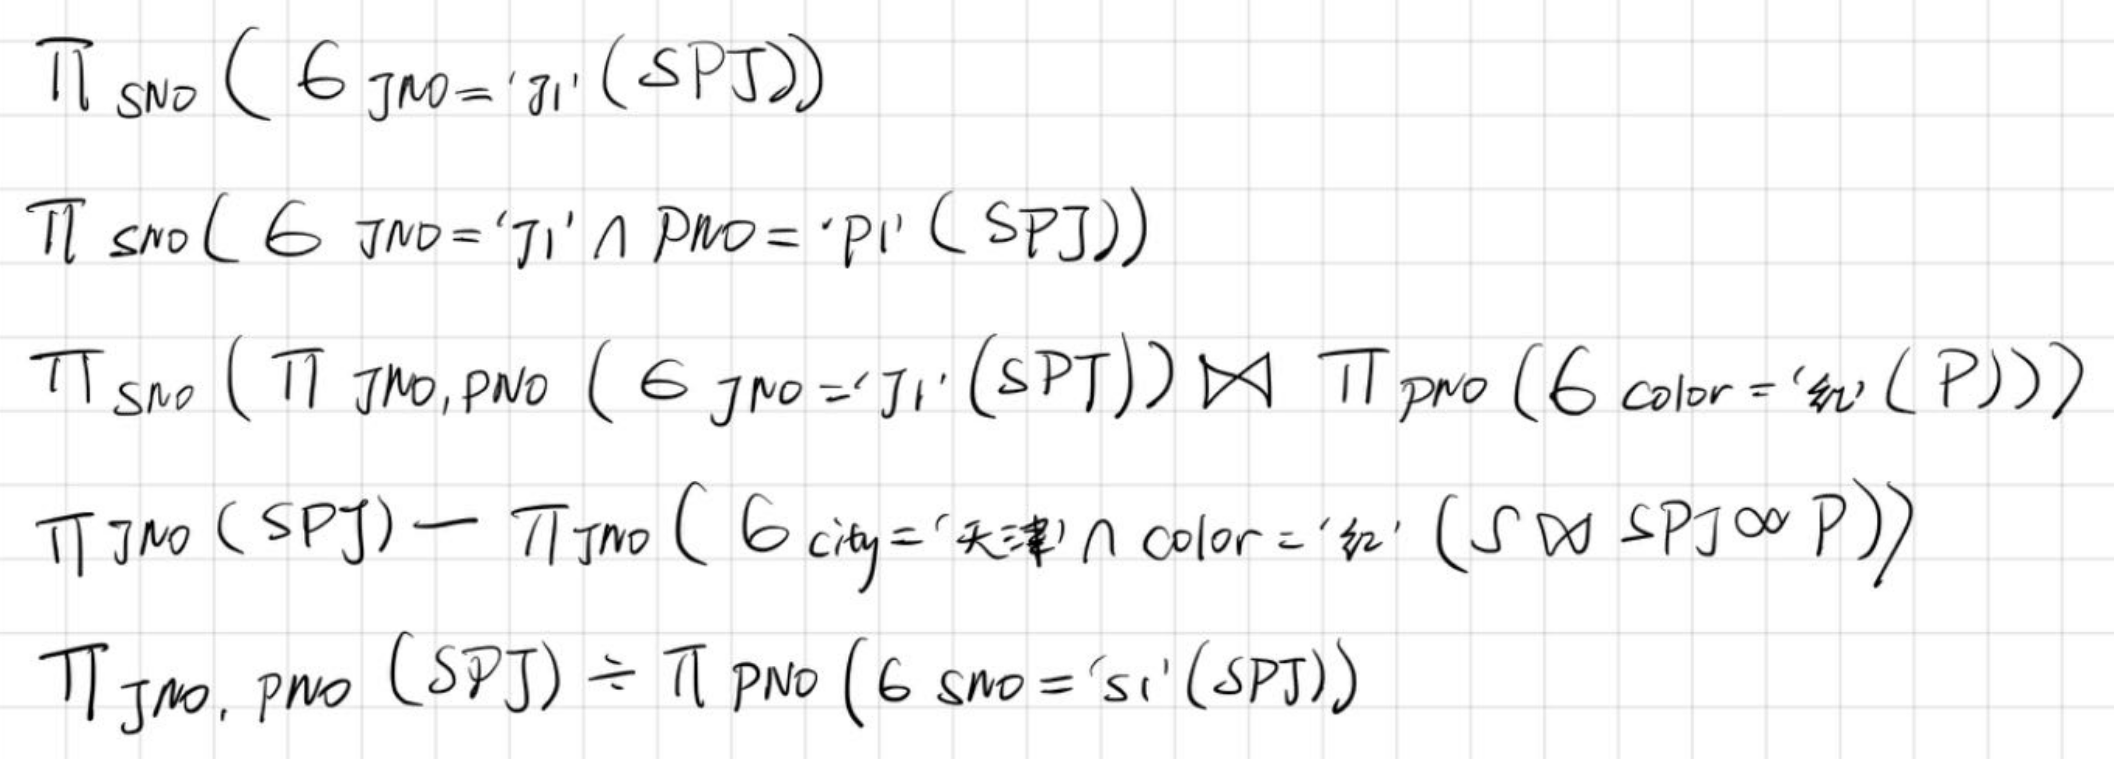 π SNO ( б JNO='J1' (SPJ))
π SNO ( б JNO='J1' ∧ PNO='P1' (SPJ))
π SNO ( π JNO,PNO ( б JNO='J1' (SPJ)) ⋈ π PNO ( б color='红' (P)))
π JNO (SPJ) — π JNO ( б city='天津' ∧ color='红' (S ⋈ SPJ ∞ P))
π JNO, PNO (SPJ) ÷ π PNO ( б SNO='S1' (SPJ))